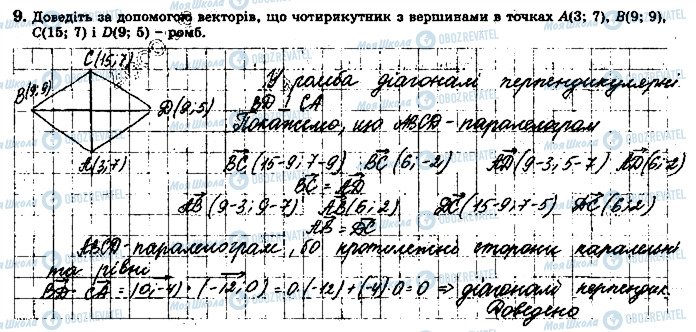 9. Доведіть за допомогою векторів, що чотирикутник з вершинами в точках A(3; 7), B(9; 9),
C(15; 7) і D(9; 5) – ромб.
C(15;7)
B(9;9)
D(9;5)
A(3;7)
У ромба діагоналі перпендикулярні
BD ⊥ CA
Покажемо, що ABCD-паралелограм
BC(15-9; 7-9) BC(6; -2) AD(9-3; 5-7) AD(6; -2)
BC = AD
AB(9-3; 9-7) AB(6; 2) DC(15-9; 7-5) DC(6; 2)
AB = DC
ABCD-паралелограм, бо протилежні сторони паралельні
та рівні
BD · CA = (0; -4) · (-12; 0) = 0·(-12)+(-4)·0=0 ⇒ діагоналі перпендик.
Доведено